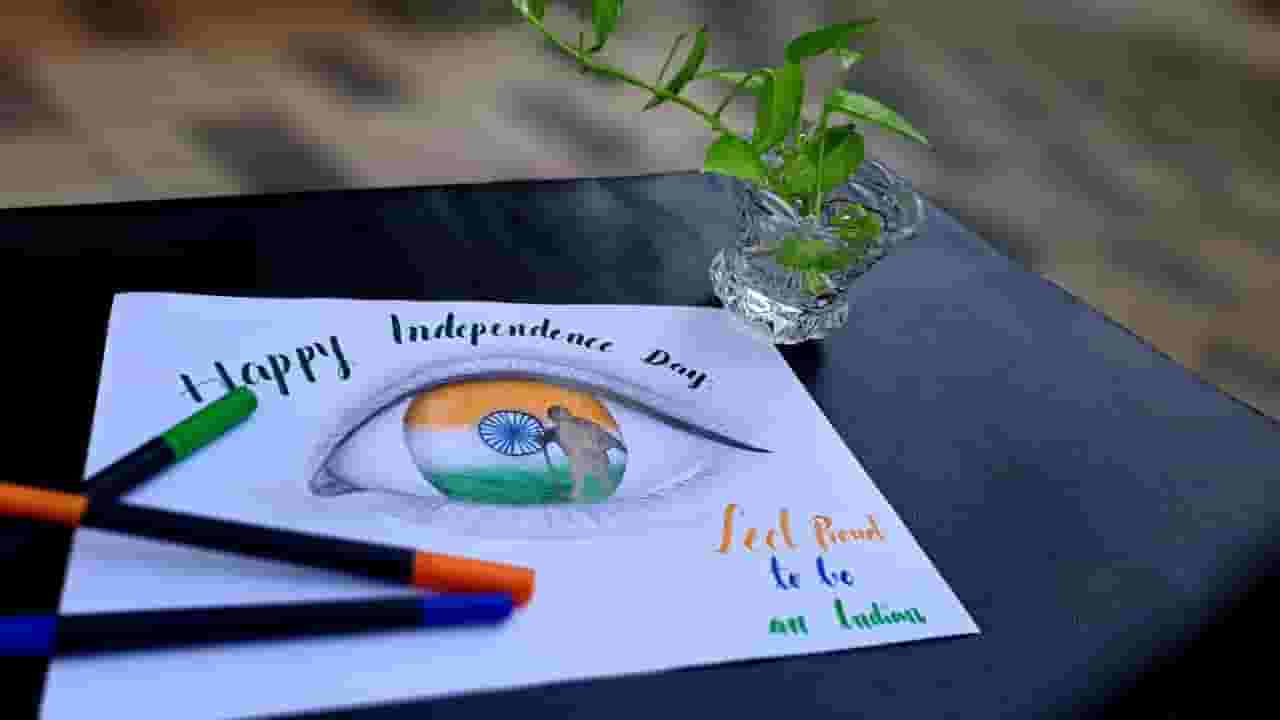 Happy Independence Day
Feel Proud
to be
an Indian